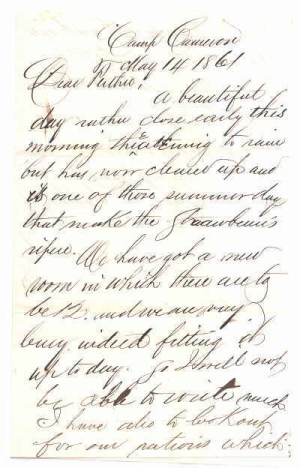 Camp Cameron
May 14 1861
Dear Father,
A beautiful
day rather close early this
morning threatening to rain
but has now cleared up and
is one of those summer day
that make the Strawberries
ripen. We have got a new
room in which there are to
be 12. and we are very
busy indeed fitting it
up to day. So I will not
be able to write much
I have also to look out
for our rations which